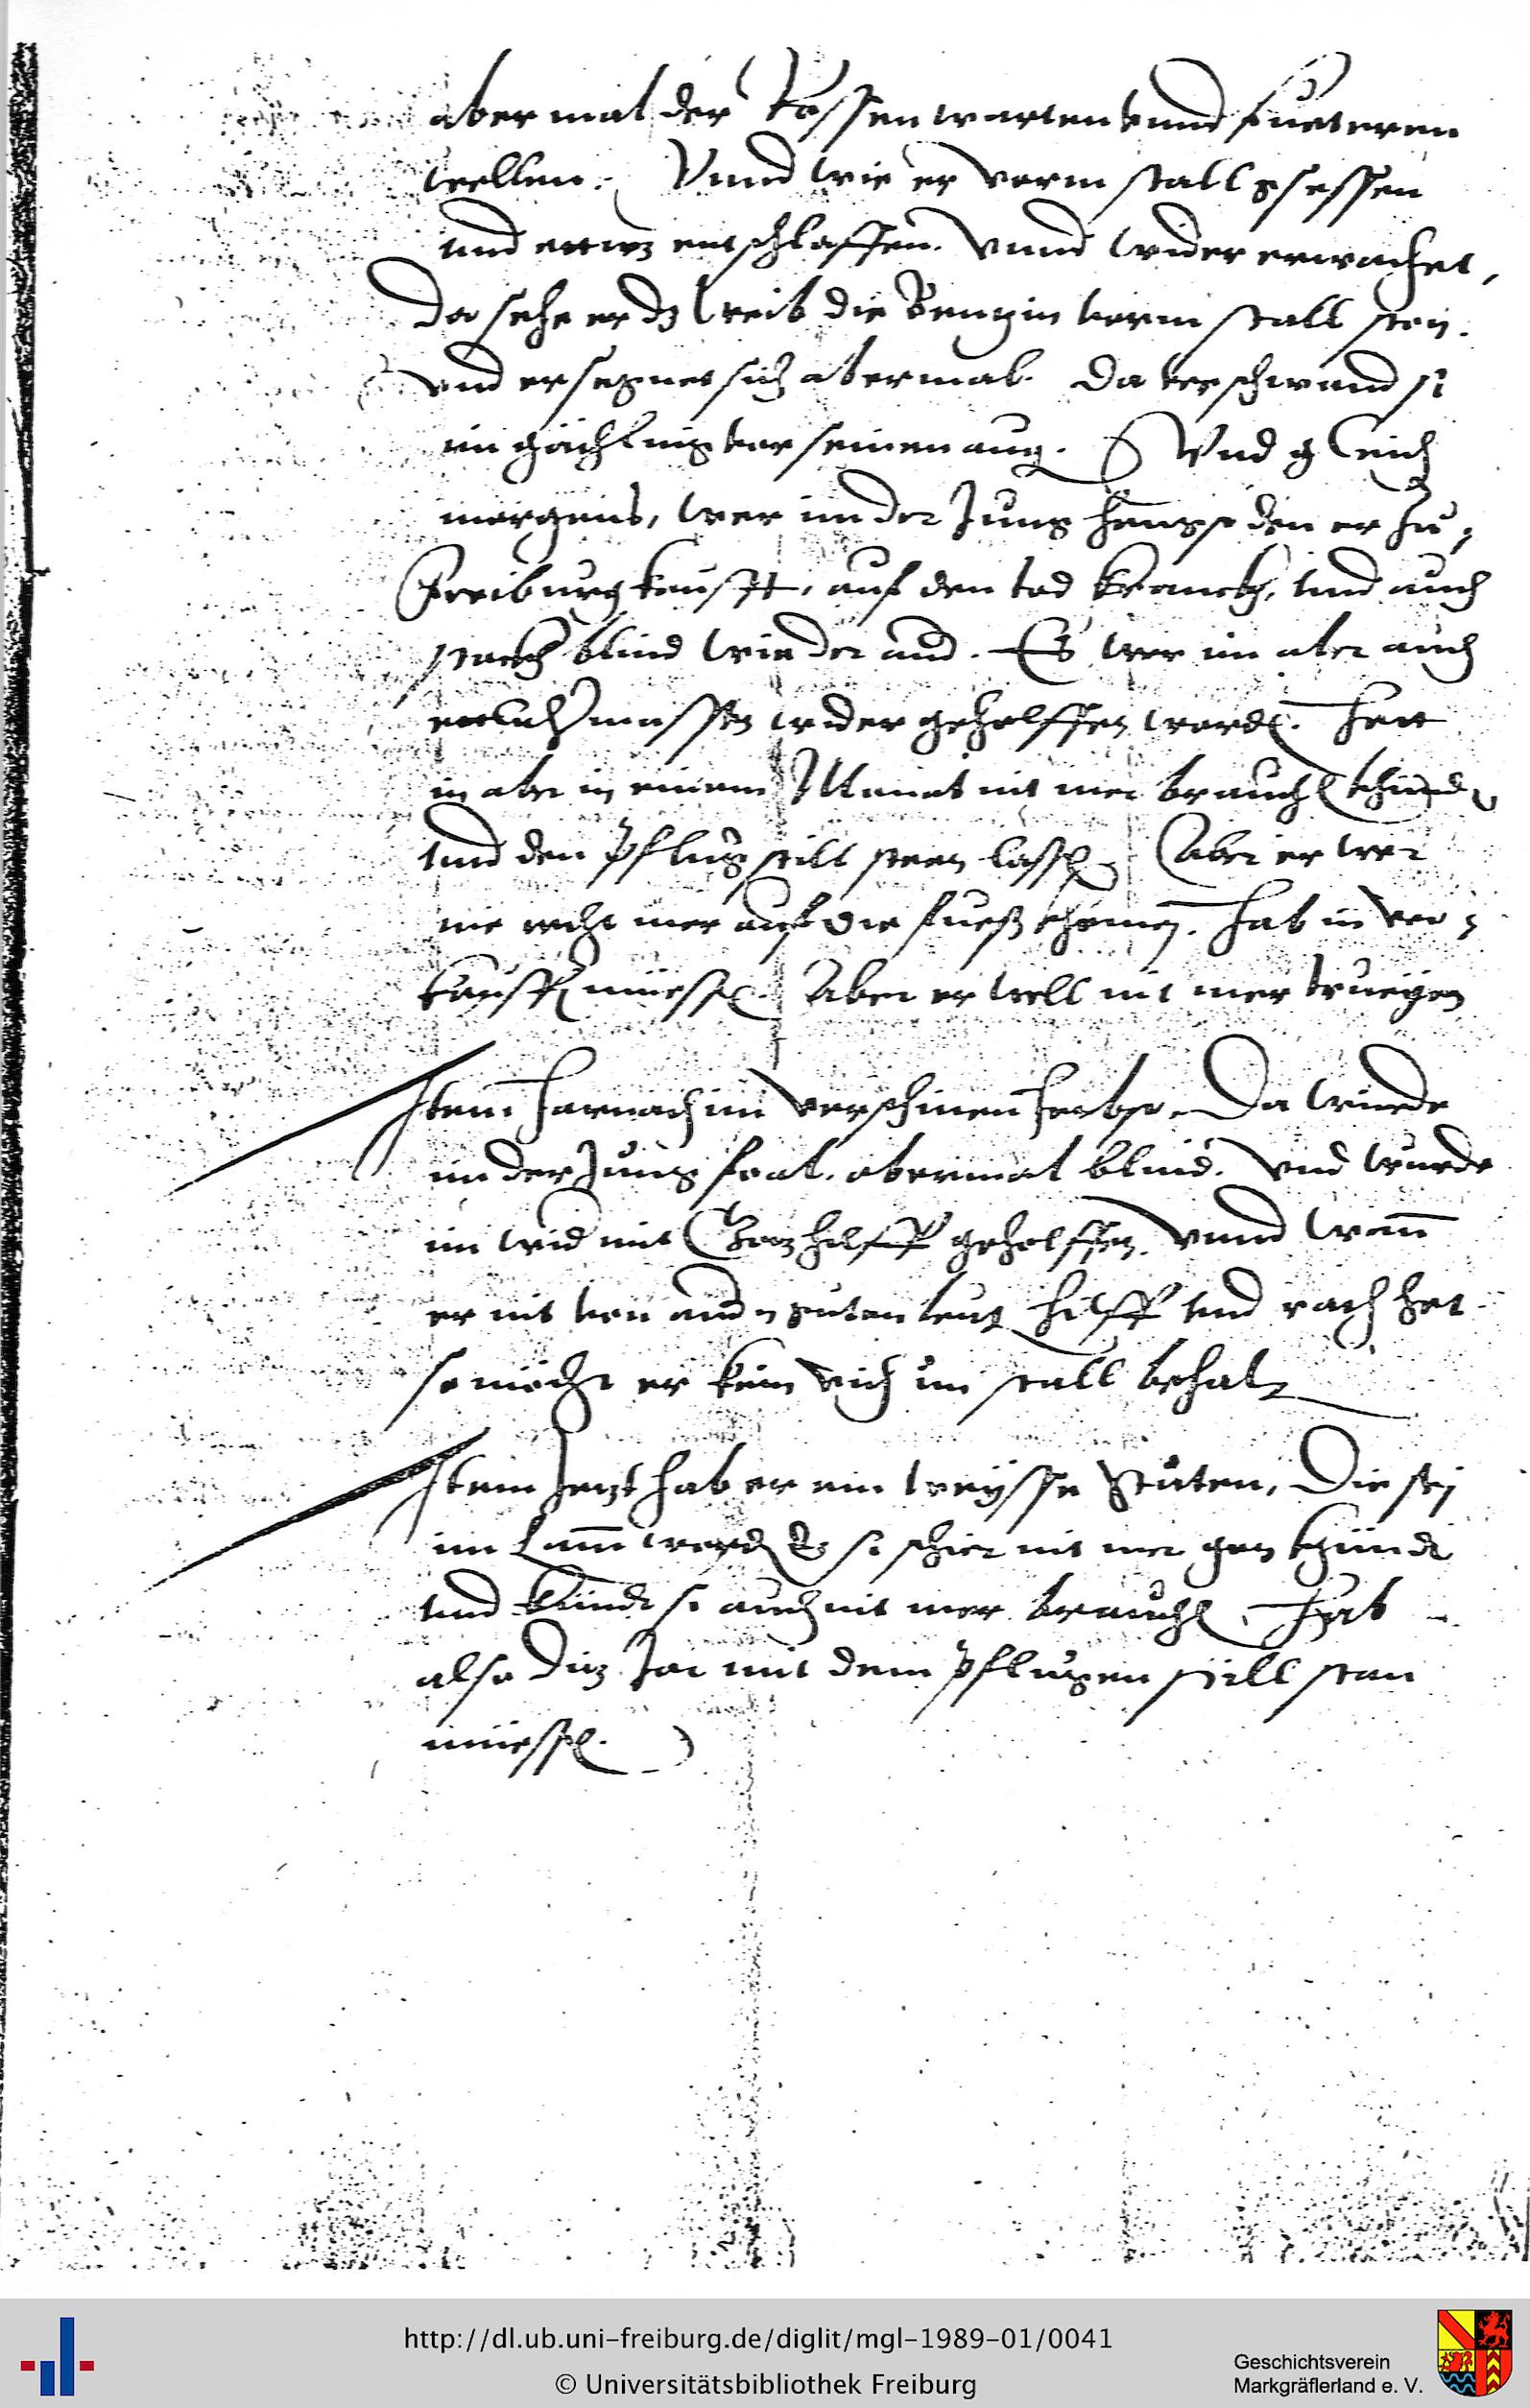 abermal der Rossen warten vnnd fueteren
wellen. Vnnd wie er vorm stall gsessen
vnd ettwz entschlaffen. Vnnd wider erwachet,
Da sehe er dz weib die Rengin vorm stall sten.
vnd er segnet sich abermal. Da verschwand si
im gächlings vor seinen aug. Vnd gleich
morgens, wer im der Jung hengst den er zu
Freiburg kaufft, auf den tod kranckh, vnd auch
stockh blind wie der and. Es wer im aber auch
ettlich massen wider geholffen word. Hett
in aber in einem Monat nit mer brauch khünd
vnd den pflug still steen lass. Aber er wer
nie recht mer auf die fuess khomen. Hab in ver
kauff müess. Aber er well nit mer
Item Harnach im verschinen Herbst. Da wurde
im der Jung abermal blind. Vnd wurde
im wid mit Gotz hilff geholffen. Vnnd wann
er nit von and guten leut hilff vnd rath het
so möcht er kein vich im stall behalt
Item Jetzt hab er ein weysse Stuten, Die sey
im Lam word dz si schier nit mer gen khündt
vnd khündt si auch nit mer brauch. Hab
also diz Jar mit dem pflugen still stan
müess.
http://dl.ub.uni-freiburg.de/diglit/mgl-1989-01/0041
© Universitätsbibliothek Freiburg
Geschichtsverein
Markgräflerland e. V.